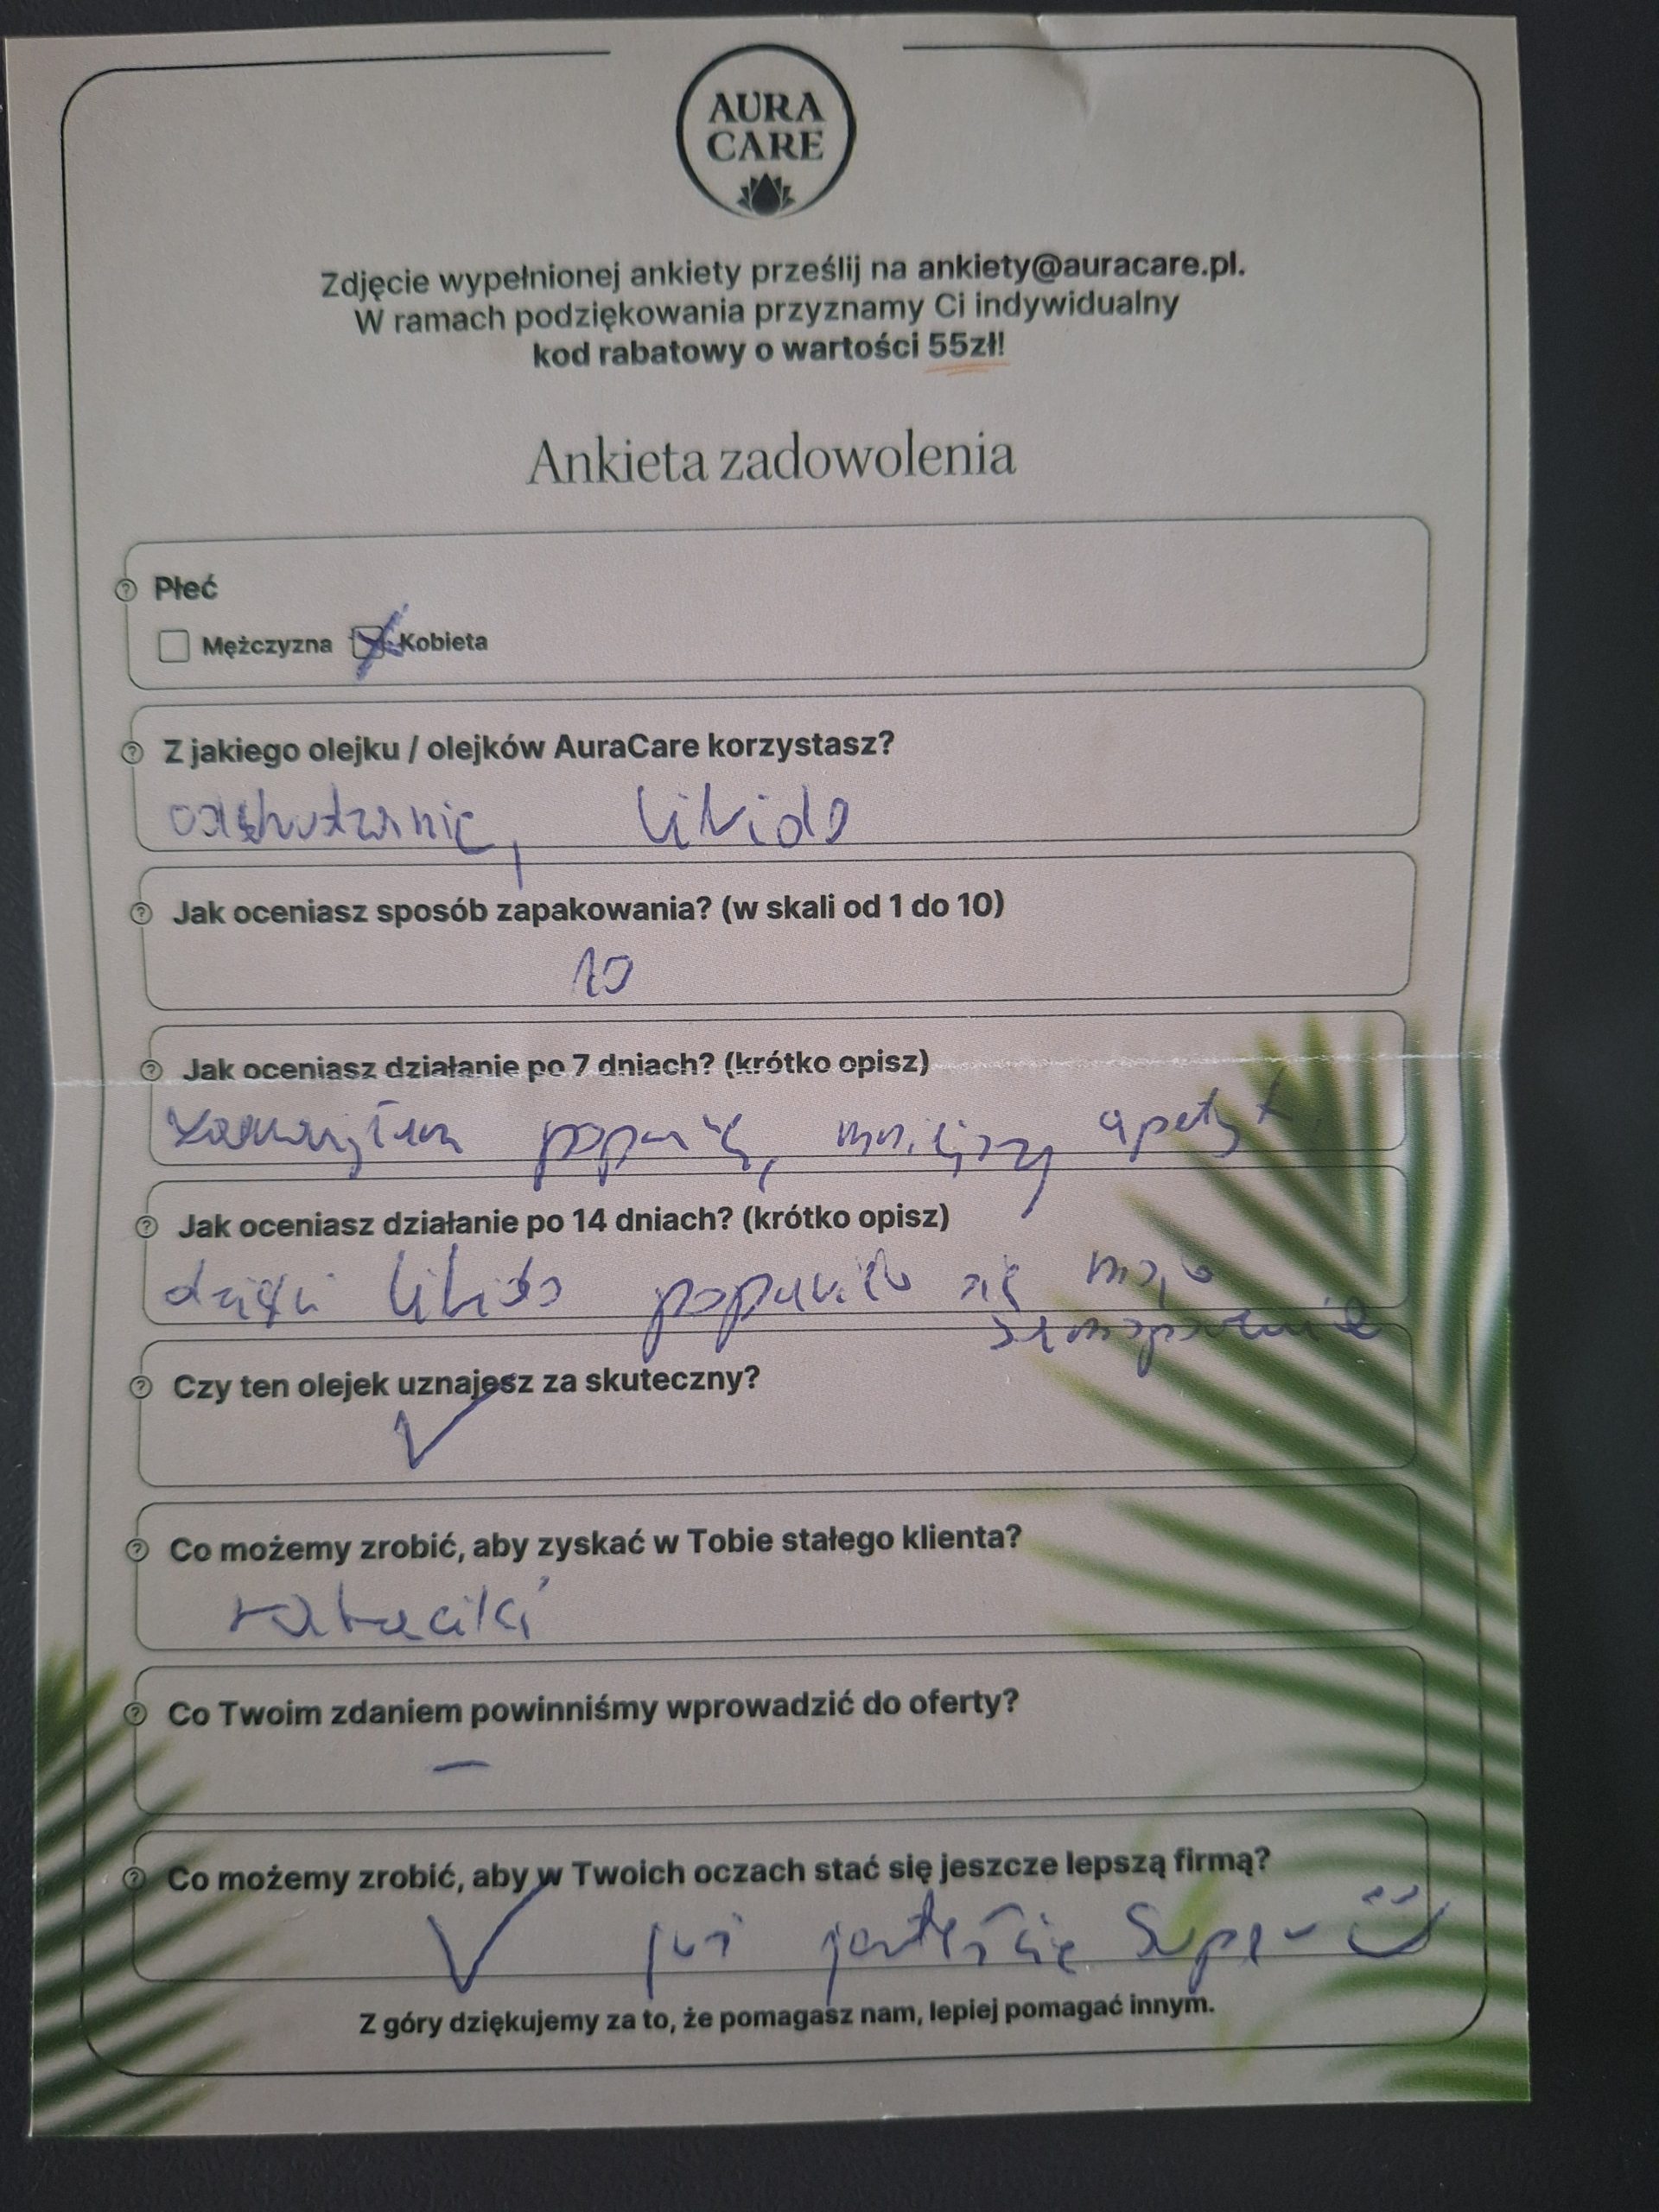 AURA
CARE
Zdjęcie wypełnionej ankiety prześlij na ankiety@auracare.pl.
W ramach podziękowania przyznamy Ci indywidualny
kod rabatowy o wartości 55zł!
Ankieta zadowolenia
Płeć
Mężczyzna Kobieta
Z jakiego olejku / olejków AuraCare korzystasz?
odchudzanie, libido
Jak oceniasz sposób zapakowania? (w skali od 1 do 10)
10
Jak oceniasz działanie po 7 dniach? (krótko opisz)
zauważyłam poprawę, mniejszy apetyt
Jak oceniasz działanie po 14 dniach? (krótko opisz)
dzięki libido poprawiło się moje
samopoczucie
Czy ten olejek uznajesz za skuteczny?
Co możemy zrobić, aby zyskać w Tobie stałego klienta?
rabaciki
Co Twoim zdaniem powinniśmy wprowadzić do oferty?
–
Co możemy zrobić, aby w Twoich oczach stać się jeszcze lepszą firmą?
już jesteście Super
Z góry dziękujemy za to, że pomagasz nam, lepiej pomagać innym.